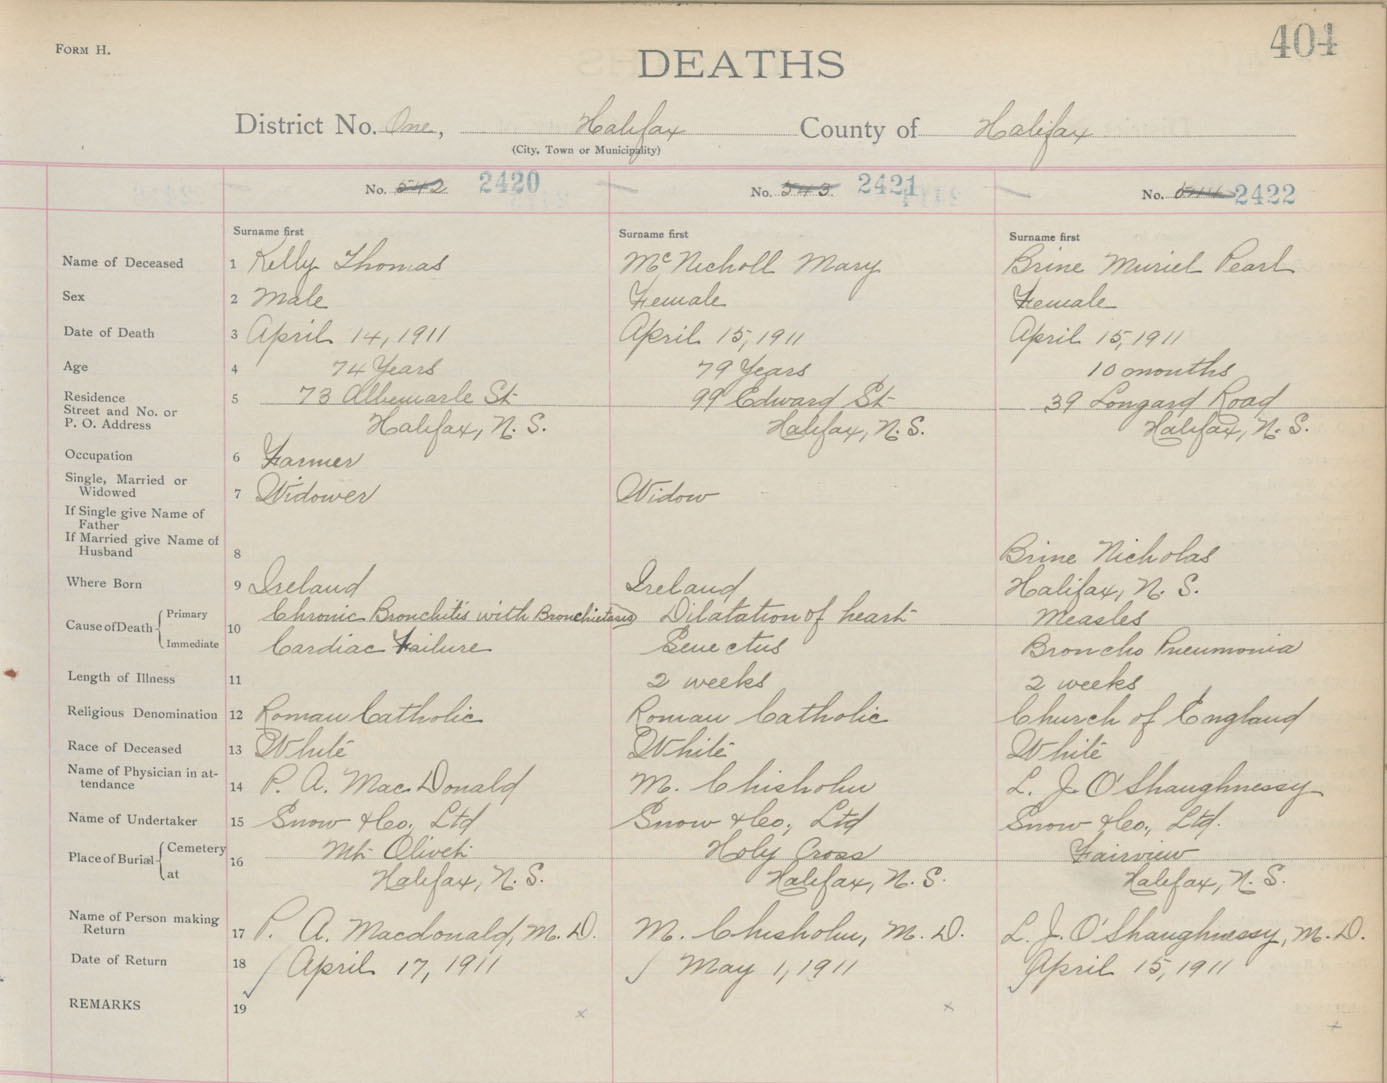 FORM H.
404
DEATHS
District No. One, Halifax County of Halifax
(City, Town or Municipality)
No. 542 2420 No. 543 2421 No. 2422
Surname first Surname first Surname first
Name of Deceased 1 Kelly Thomas McNicholl Mary Brine Muriel Pearl
Sex 2 Male Female Female
Date of Death 3 April 14, 1911 April 15, 1911 April 15, 1911
Age 4 74 Years 79 Years 10 months
Residence
Street and No. or 5 73 Albemarle St 99 Edward St 39 Longard Road
P. O. Address Halifax, N. S. Halifax, N. S. Halifax, N. S.
Occupation 6 Farmer
Single, Married or
Widowed 7 Widower Widow
If Single give Name of
Father
If Married give Name of
Husband 8 Brine Nicholas
Where Born 9 Ireland Ireland Halifax, N. S.
Cause of Death Primary 10 Chronic Bronchitis with Bronchietasis Dilatation of heart Measles
Immediate Cardiac Failure Senectus Broncho Pneumonia
Length of Illness 11 2 weeks 2 weeks
Religious Denomination 12 Roman Catholic Roman Catholic Church of England
Race of Deceased 13 White White White
Name of Physician in at-
tendance 14 P. A. MacDonald M. Chisholm L. J. O'Shaughnessy
Name of Undertaker 15 Snow & Co., Ltd Snow & Co., Ltd Snow & Co., Ltd.
Place of Burial Cemetery 16 Mt. Olivet Holy Cross Fairview
at Halifax, N. S. Halifax, N. S. Halifax, N. S.
Name of Person making
Return 17 P. A. Macdonald, M. D. M. Chisholm, M. D. L. J. O'Shaughnessy, M. D.
Date of Return 18 April 17, 1911 May 1, 1911 April 15, 1911
REMARKS 19 x x x